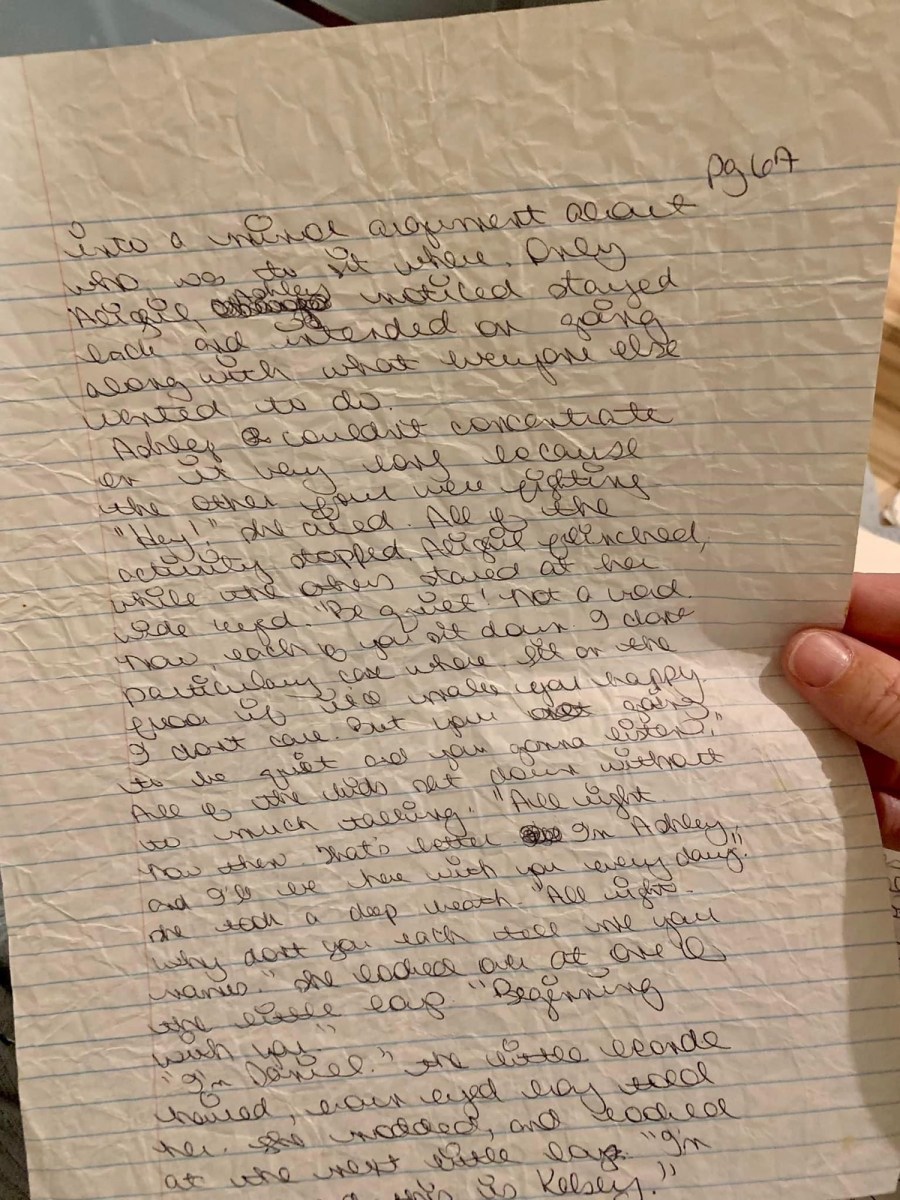 pg 67
into a minor argument about
who was to sit where. Only
Abigil Ashley noticed stayed
back and intended on going
along with what everyone else
wanted to do.
Ashley couldn't concentrate
on it very long because
the other four were fighting
"Hey!" she cried. All of the
activity stopped. Abigil flinched,
while the others stared at her
wide eyed. "Be quiet! Not a word.
Now, each of you sit down. I dont
particulary care where. Sit on the
floor if it'll make you happy.
I dont care. But your going
to be quiet and your gonna listen."
All of the kids sat down without
to much talking. "All right.
Now then thats better I'm Ashley,
and I'll be here with you every day."
she took a deep breath. "All right.
Why dont you each tell me your
names." She looked over at one of
the little boys. "Beginning
with you"
"I'm Daniel." the little blonde
haired, brown eyed boy told
her. She nodded, and looked
at the next little boy. "I'm
this is Kelsey."